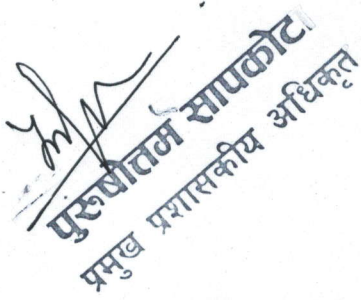 पुरूषोतम सापकोटा
प्रमुख प्रशासकीय अधिकृत